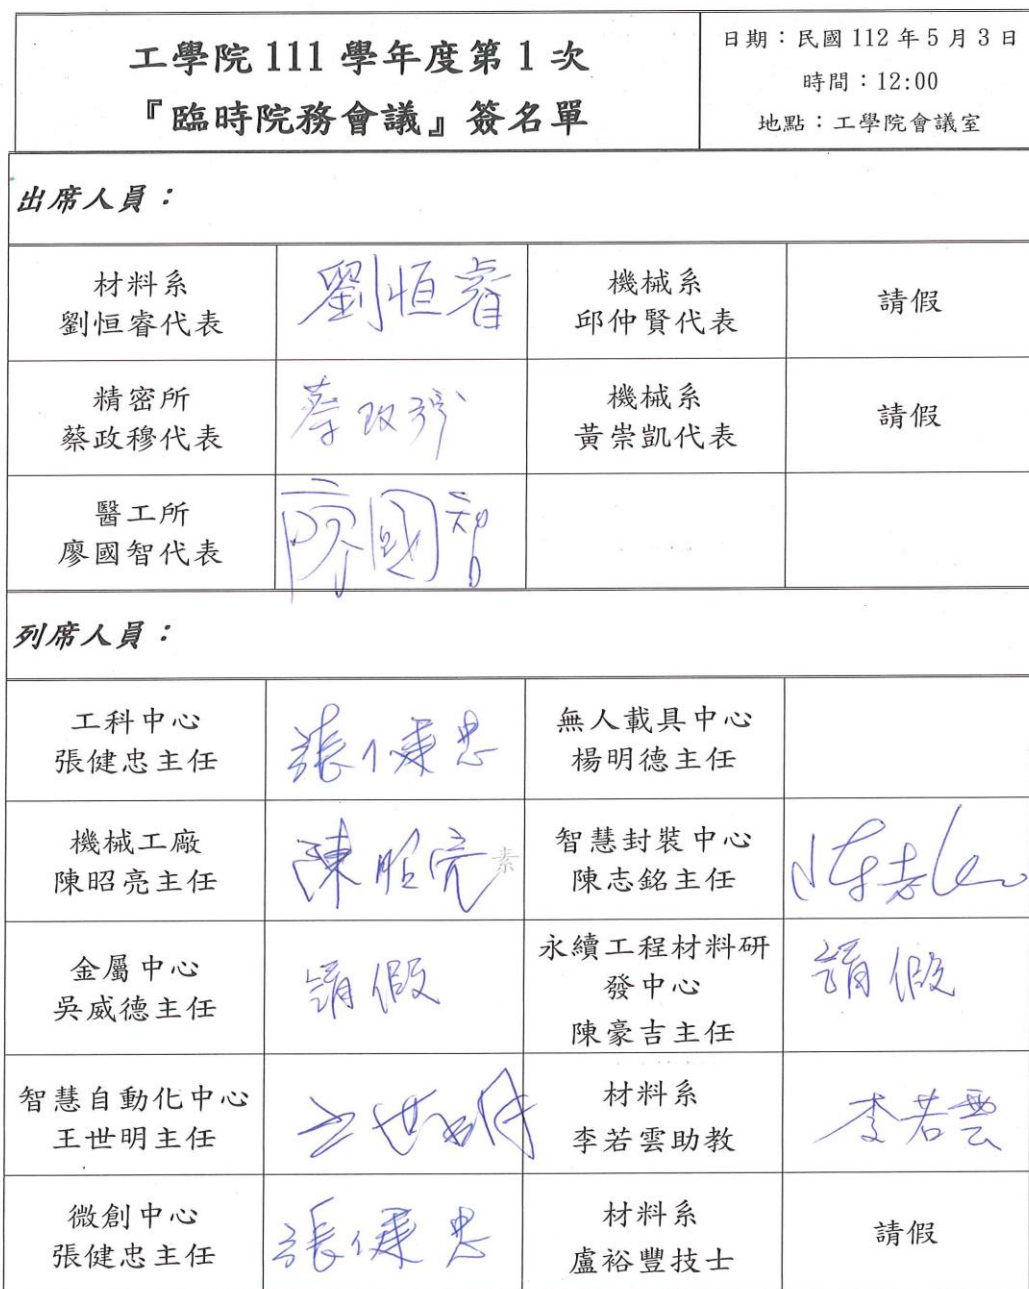 工學院 111 學年度第 1 次
『臨時院務會議』簽名單
日期：民國 112 年 5 月 3 日
時間：12:00
地點：工學院會議室
出席人員：
材料系
劉恒睿代表
劉恒睿
機械系
邱仲賢代表
請假
精密所
蔡政穆代表
蔡政穆
機械系
黃崇凱代表
請假
醫工所
廖國智代表
廖國智
列席人員：
工科中心
張健忠主任
張健忠
無人載具中心
楊明德主任
機械工廠
陳昭亮主任
陳昭亮
素
智慧封裝中心
陳志銘主任
陳志銘
金屬中心
吳威德主任
請假
永續工程材料研
發中心
陳豪吉主任
請假
智慧自動化中心
王世明主任
王世明
材料系
李若雲助教
李若雲
微創中心
張健忠主任
張健忠
材料系
盧裕豐技士
請假